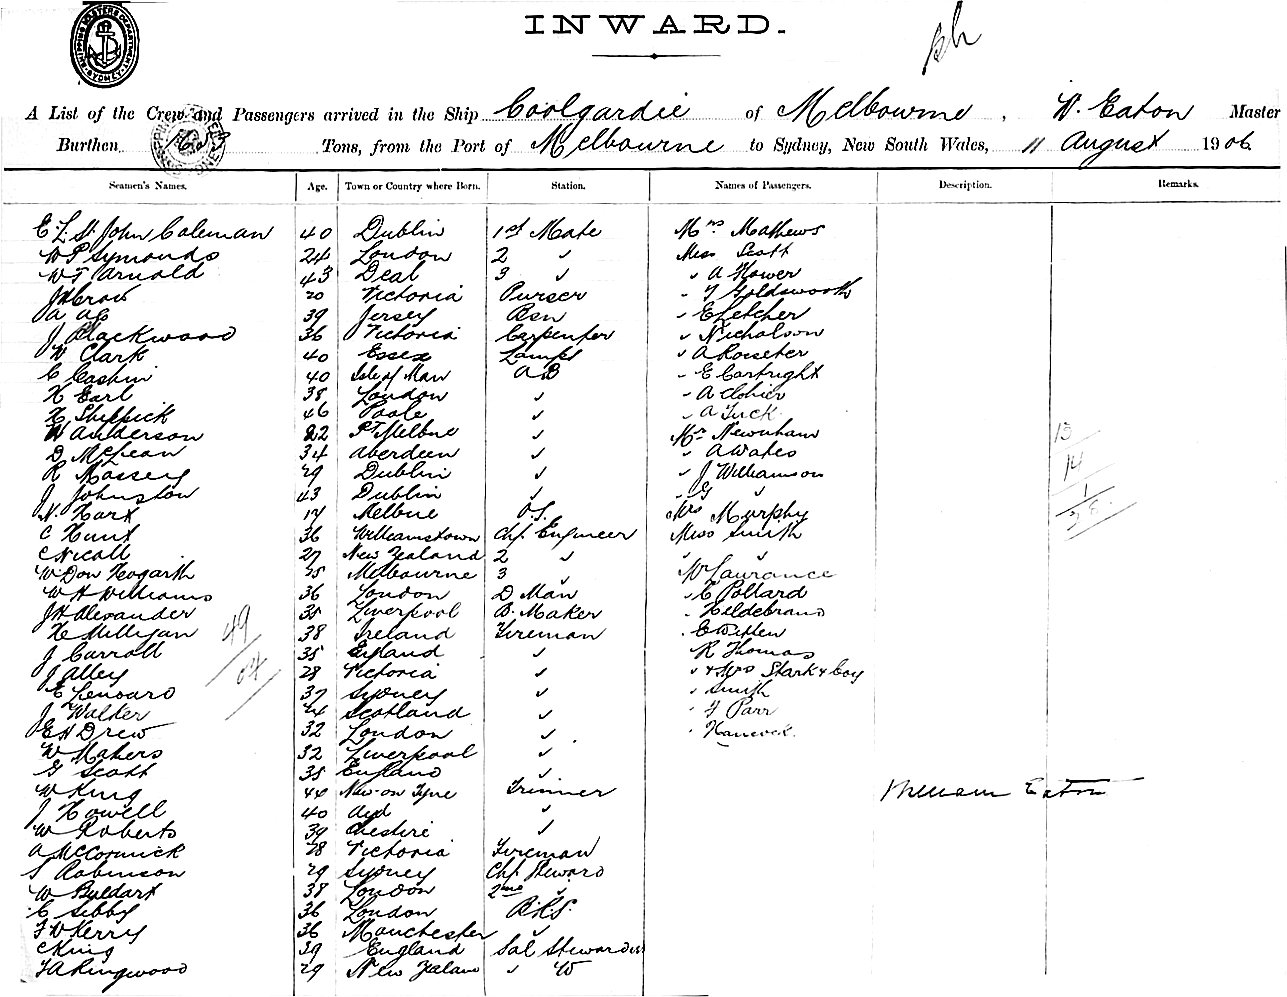 INWARD.
A List of the Crew and Passengers arrived in the Ship Coolgardie of Melbourne, W. Eaton Master
Burthen Tons, from the Port of Melbourne to Sydney, New South Wales, 11 August 1906
Seamen's Names. Age. Town or Country where Born. Station. Names of Passengers. Description. Remarks.
E. L. St. John Coleman 40 Dublin 1st Mate Mrs Mathews
W P Symonds 24 London 2 " Miss Scott
W F Arnold 43 Deal 3 " " A Hower
20 Victoria Purser " Goldsworth
39 Jersey Bsn " E Fletcher
J Blackwood 36 Victoria Carpenter " Nicholson
W Clark 40 Essex Lamps " A
C 40 Isle of Man AB " E Cartright
H Earl 38 London " " A
46 Poole " " A Tuck
W Anderson 22 Pt Melbne " Mr Newnham 13
D McLean 34 Aberdeen " " A Wates 14
R Massey 29 Dublin " " J Williamson 1
J Johnston 43 Dublin " " G " 28
N. Hart 17 Melbne O.S. Mrs Murphy
C Hunt 36 Williamstown Chf. Engineer Miss Smith
C Nicall 27 New Zealand 2 " " "
W Don Hogarth 25 Melbourne 3 " Mr Laurance
W H Williams 36 London D Man " C Pollard
J H Alexander 35 Liverpool B. Maker " Hildebrand
H Milligan 49 38 Ireland Fireman " E
J Carroll 35 England " " R Thomas
J Alley 64 28 Victoria " " & Mrs Stark & boy
E Lenoard 37 Sydney " " Smith
J Walker 24 Scotland " " Parr
E H Drew 32 London " " Hancock
W Makers 32 Liverpool "
G Scott 35 England "
W King 44 New on Tyne Trimmer William Eaton
J Howell 40 "
W Roberts 39 Cheshire "
A McCormick 28 Victoria Fireman
S Robinson 29 Sydney Chf Steward
W 38 London 2nd "
C Sibby 36 London B.R.S.
F W Kerry 36 Manchester "
C King 39 England Sal Stewardess
F A Ringwood 29 New Zealand " W